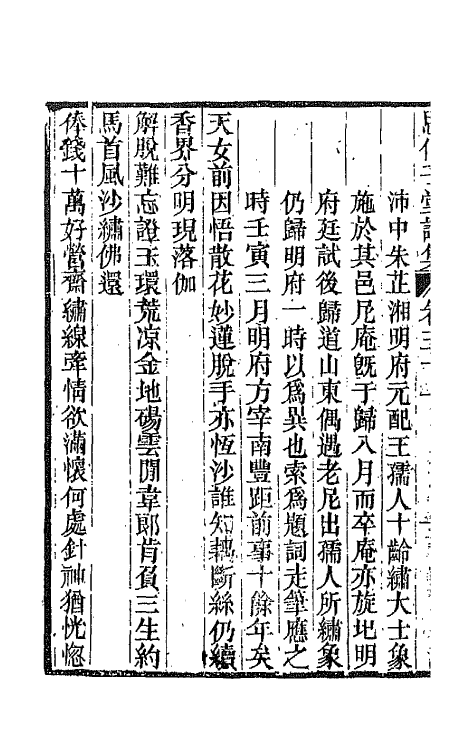 沛中朱芷湘明府元配王孺人十齡繡大士象
施於其邑尼庵旣于歸入月而卒庵亦旋圮明
府廷試後歸道山東偶遇老尼出孺人所繡象
仍歸明府一時以爲異也索爲題詞走筆應之
時壬寅三月明府方宰南豐距前事十餘年矣
天女前因悟散花妙蓮脫手亦恆沙誰知轉斷絲仍續
香界分明現落伽
解脫難忘證玉環荒凉金地碭雲閒韋郎肯負三生約
馬首風沙繡佛還
俸錢十萬好營齋繡線牽情欲滿懷何處針神猶恍惚